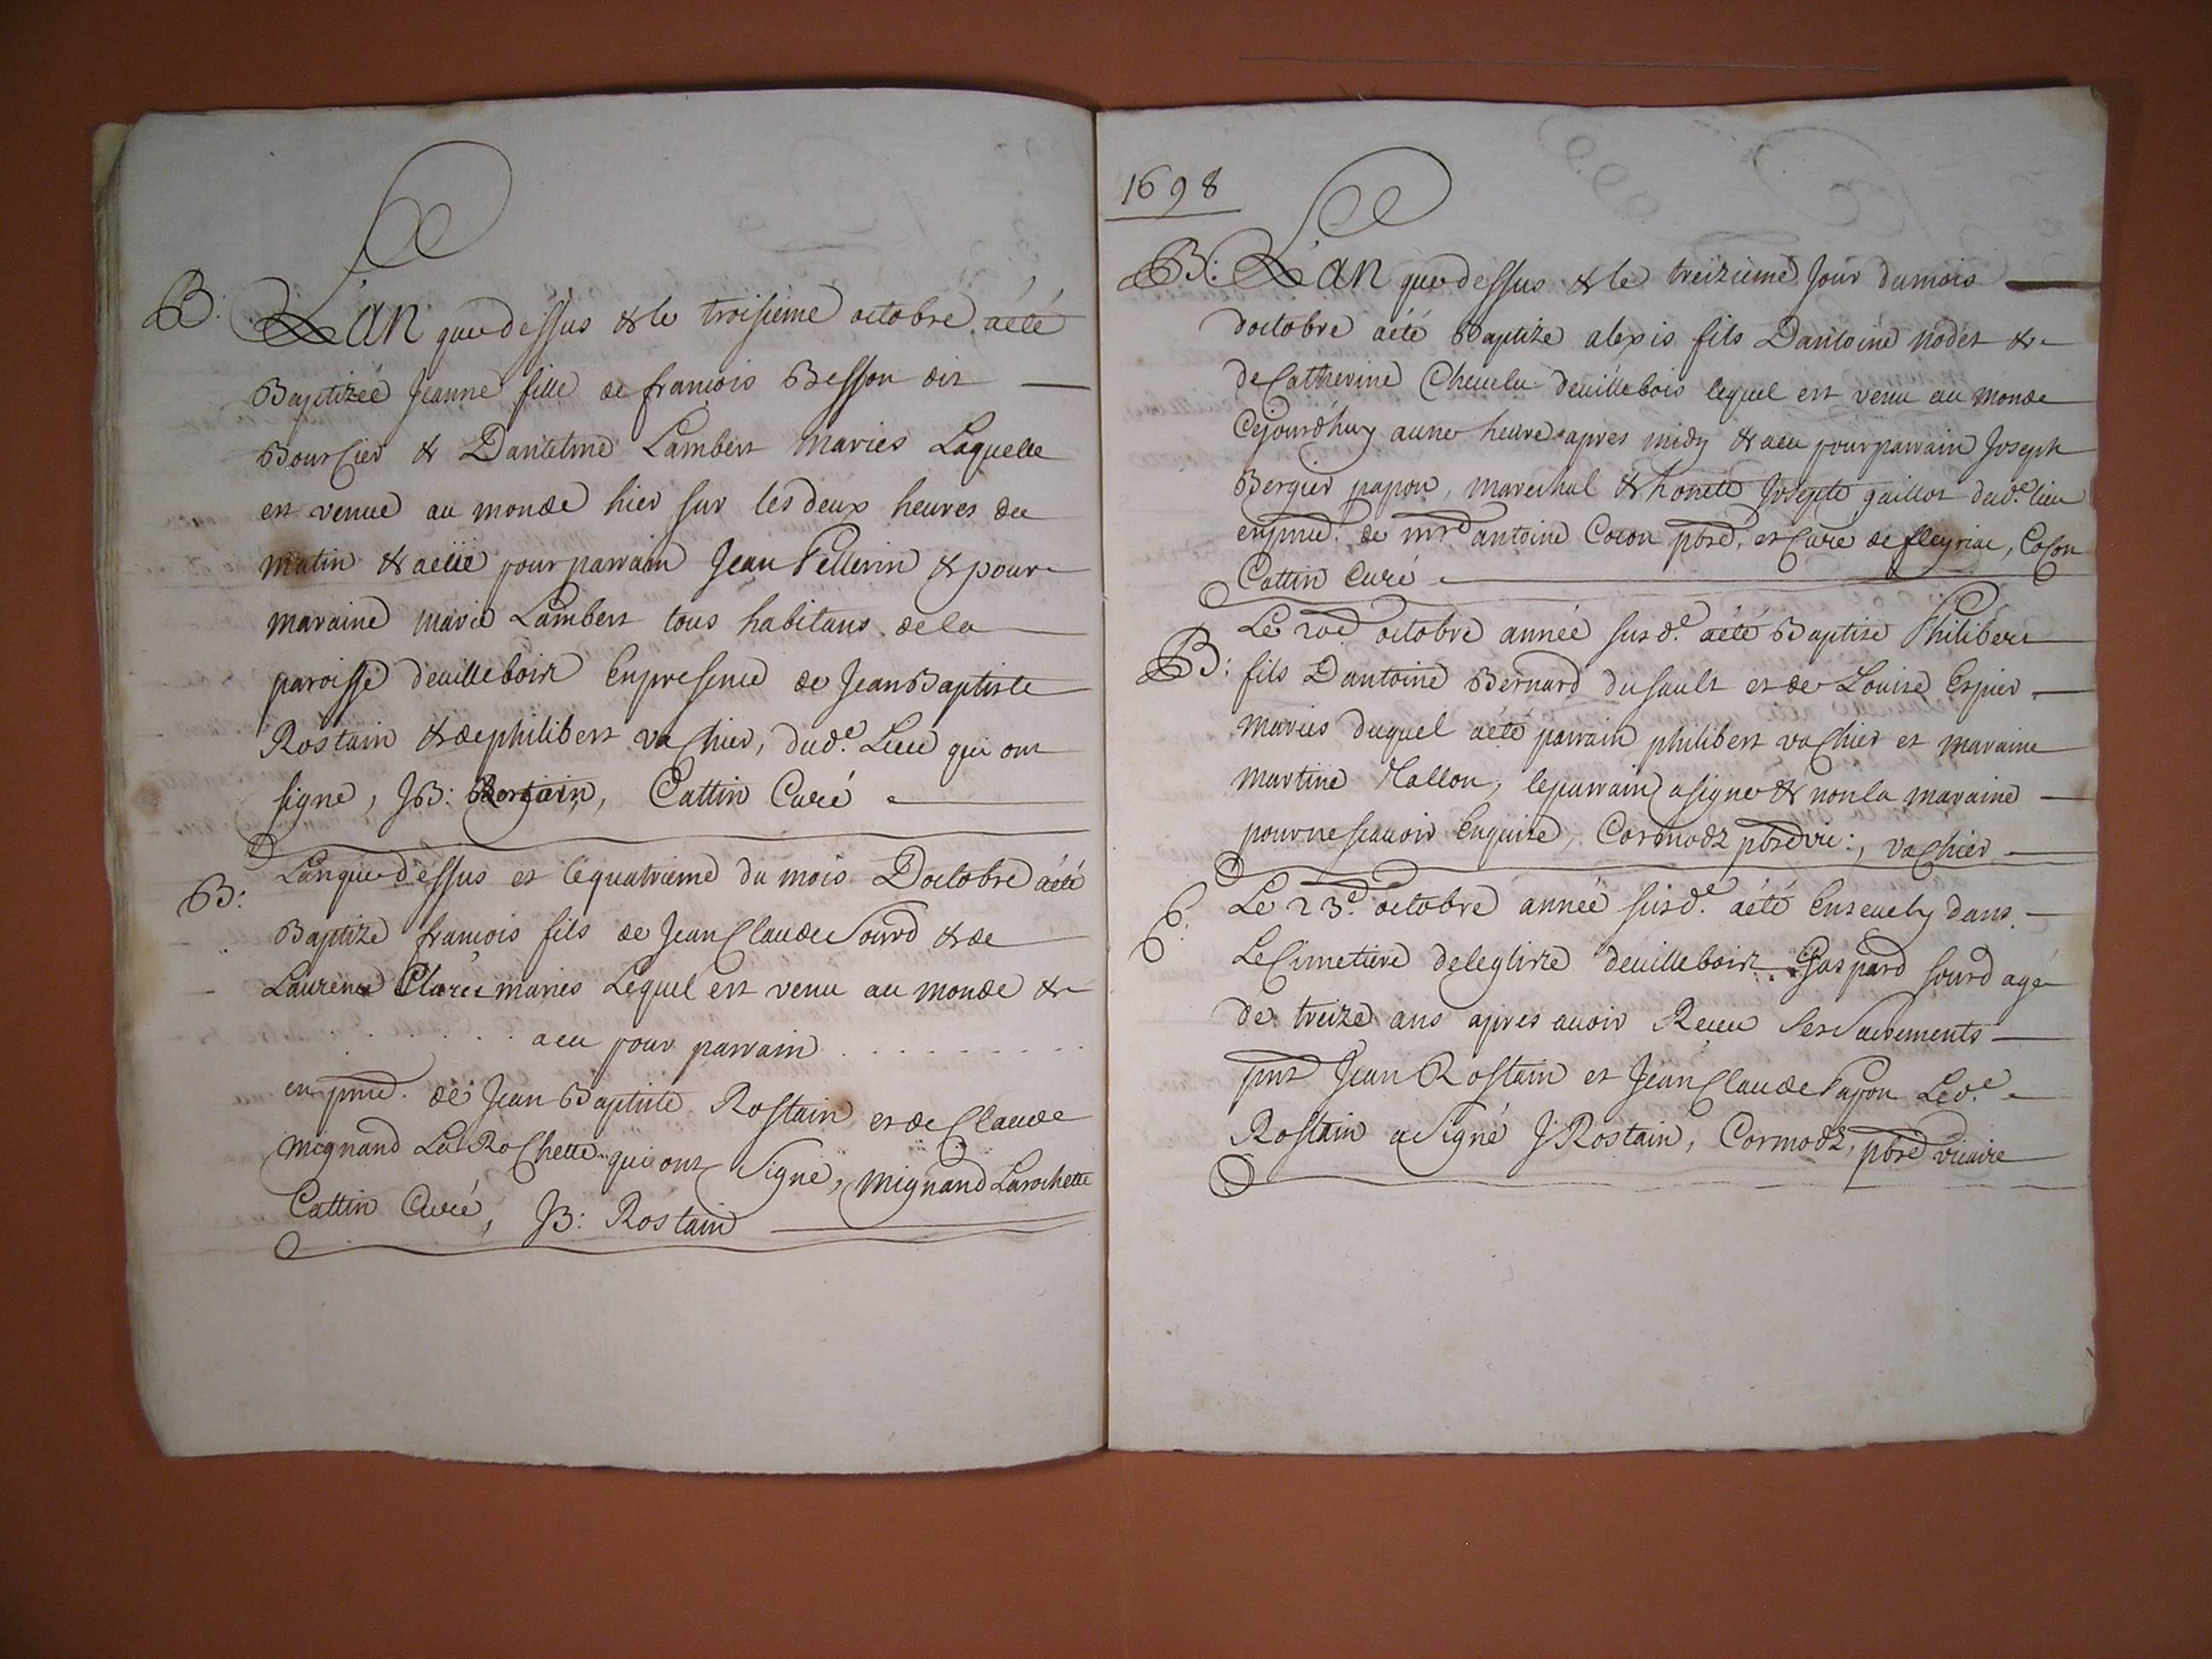 B: L'an que dessus & le troisieme octobre a été
Baptizée Jeanne fille de francois Besson dit
Boursier & Dantelme Lambert mariés Laquelle
est venue au monde hier sur les deux heures du
matin & a eüe pour parrain Jean Pellerin & pour
maraine marie Lambert tous habitans de la
paroisse deuillebois En presence de Jean Baptiste
Rostain & de philibert vachier, dud.e Lieu qui ont
signe, JB: Rostain, Cattin Curé
B: L'an que dessus et le quatrieme du mois Doctobre a été
Baptize francois fils de Jean Claude Sourd & de
Laurence mariés Lequel est venu au monde &
. . . . . . a eu pour parrain . . . . . . . . .
en pnce. de Jean Baptiste Rostain et de Claude
mignand La Rochette qui ont Signe, mignand Larochette
Cattin Curé, JB: Rostain
1698
B: L'an que dessus & le treizieme Jour du mois
doctobre a été Baptize alexis fils Dantoine nodet &
de Catherine Cheuelu deuillebois lequel est venu au monde
Cejourd'huy a une heure apres midy & a eu pour parrain Joseph
Bergier papon, marechal & honete Josepte gaillot dud.e lieu
en pnce. de mre antoine Cocon pbre, et Cure de fleyriac, Cocon
Cattin Curé
Le 20e octobre année susd.e a été Baptise Philibert
B: fils Dantoine Bernard du sault et de Louise Espier
mariés duquel a été parrain philibert vachier et maraine
martine Tallon, le parrain a signe & non la maraine
pour ne scauoir Enquise, Cormodz pbre vic:, vachier
E: Le 23e. octobre année susd.e a été Enseuely dans
Le Cimetiere de leglise deuillebois Gaspard sourd agé
de treize ans apres auoir Receu Ses Sacrements
pnts Jean Rostain et Jean Claude Papon Led.e
Rostain a Signé J Rostain, Cormodz, pbre vicaire